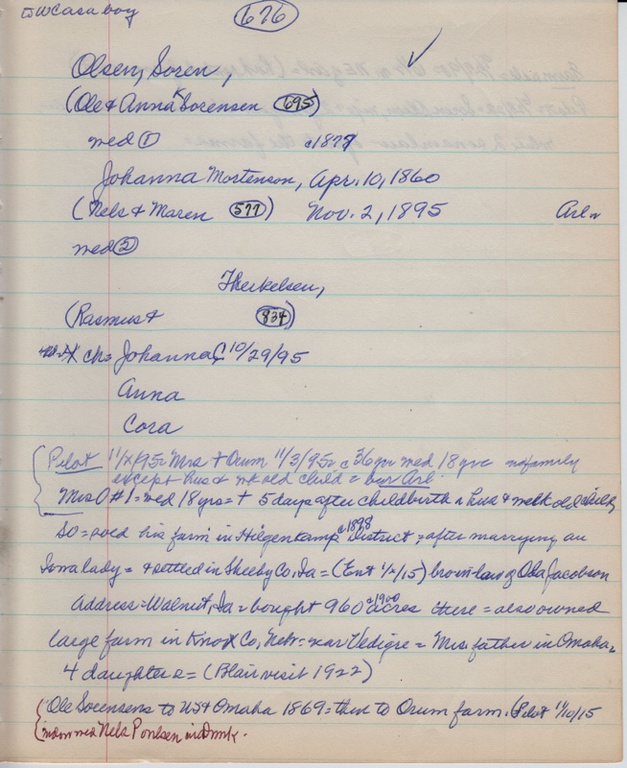 676
Olsen, Soren,
(Ole & Anna Sorensen 695)
med ① c1877
Johanna Mortenson, Apr. 10, 1860
(Nels & Maren 577) Nov. 2, 1895
med ②
Therkelsen,
(Rasmus & 834)
ch = Johanna C 10/29/95
Anna
Cora
Pilot 11/ /95 = Mrs + Orum 11/3/95 = c 36 yrs med 18 yrs no family
except hus & wk old child = bur Arl.
Mrs O #1 = med 18 yrs = + 5 days after childbirth hus & wk old child
SO = sold his farm in Hilgenkamp c1898 District, after marrying an
Iowa lady = & settled in Shelby Co, Ia = (Ent 1/ /15) bro-in-law of Ola Jacobson
Address = Walnut, Ia = bought 960 acres c1900 there = also owned
large farm in Knox Co, Nebr = near Verdigre = Mrs. father in Omaha,
4 daughters = (Blair visit 1922)
Ole Sorensens to US & Omaha 1869 = then to Orum farm. (Pilot 11/10/15
med Nels Poulsen in Dnmk.